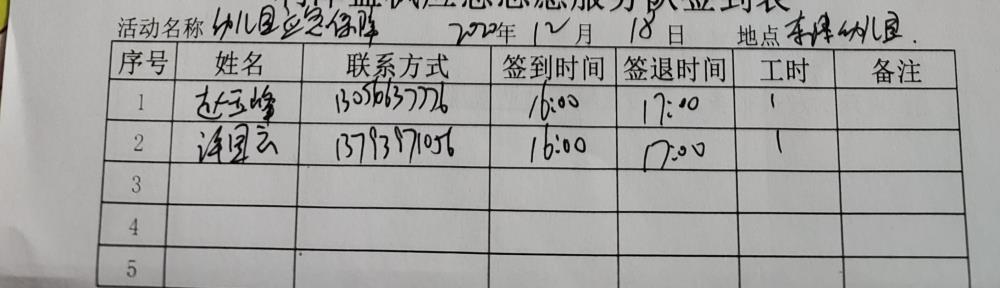 应急志愿服务队签到表
活动名称 幼儿园应急保障 2020年 12月 18日 地点 幼儿园.
序号 姓名 联系方式 签到时间 签退时间 工时 备注
1 赵玉峰 13056637776 16:00 17:00 1
2 国云 13793971056 16:00 17:00 1
3
4
5